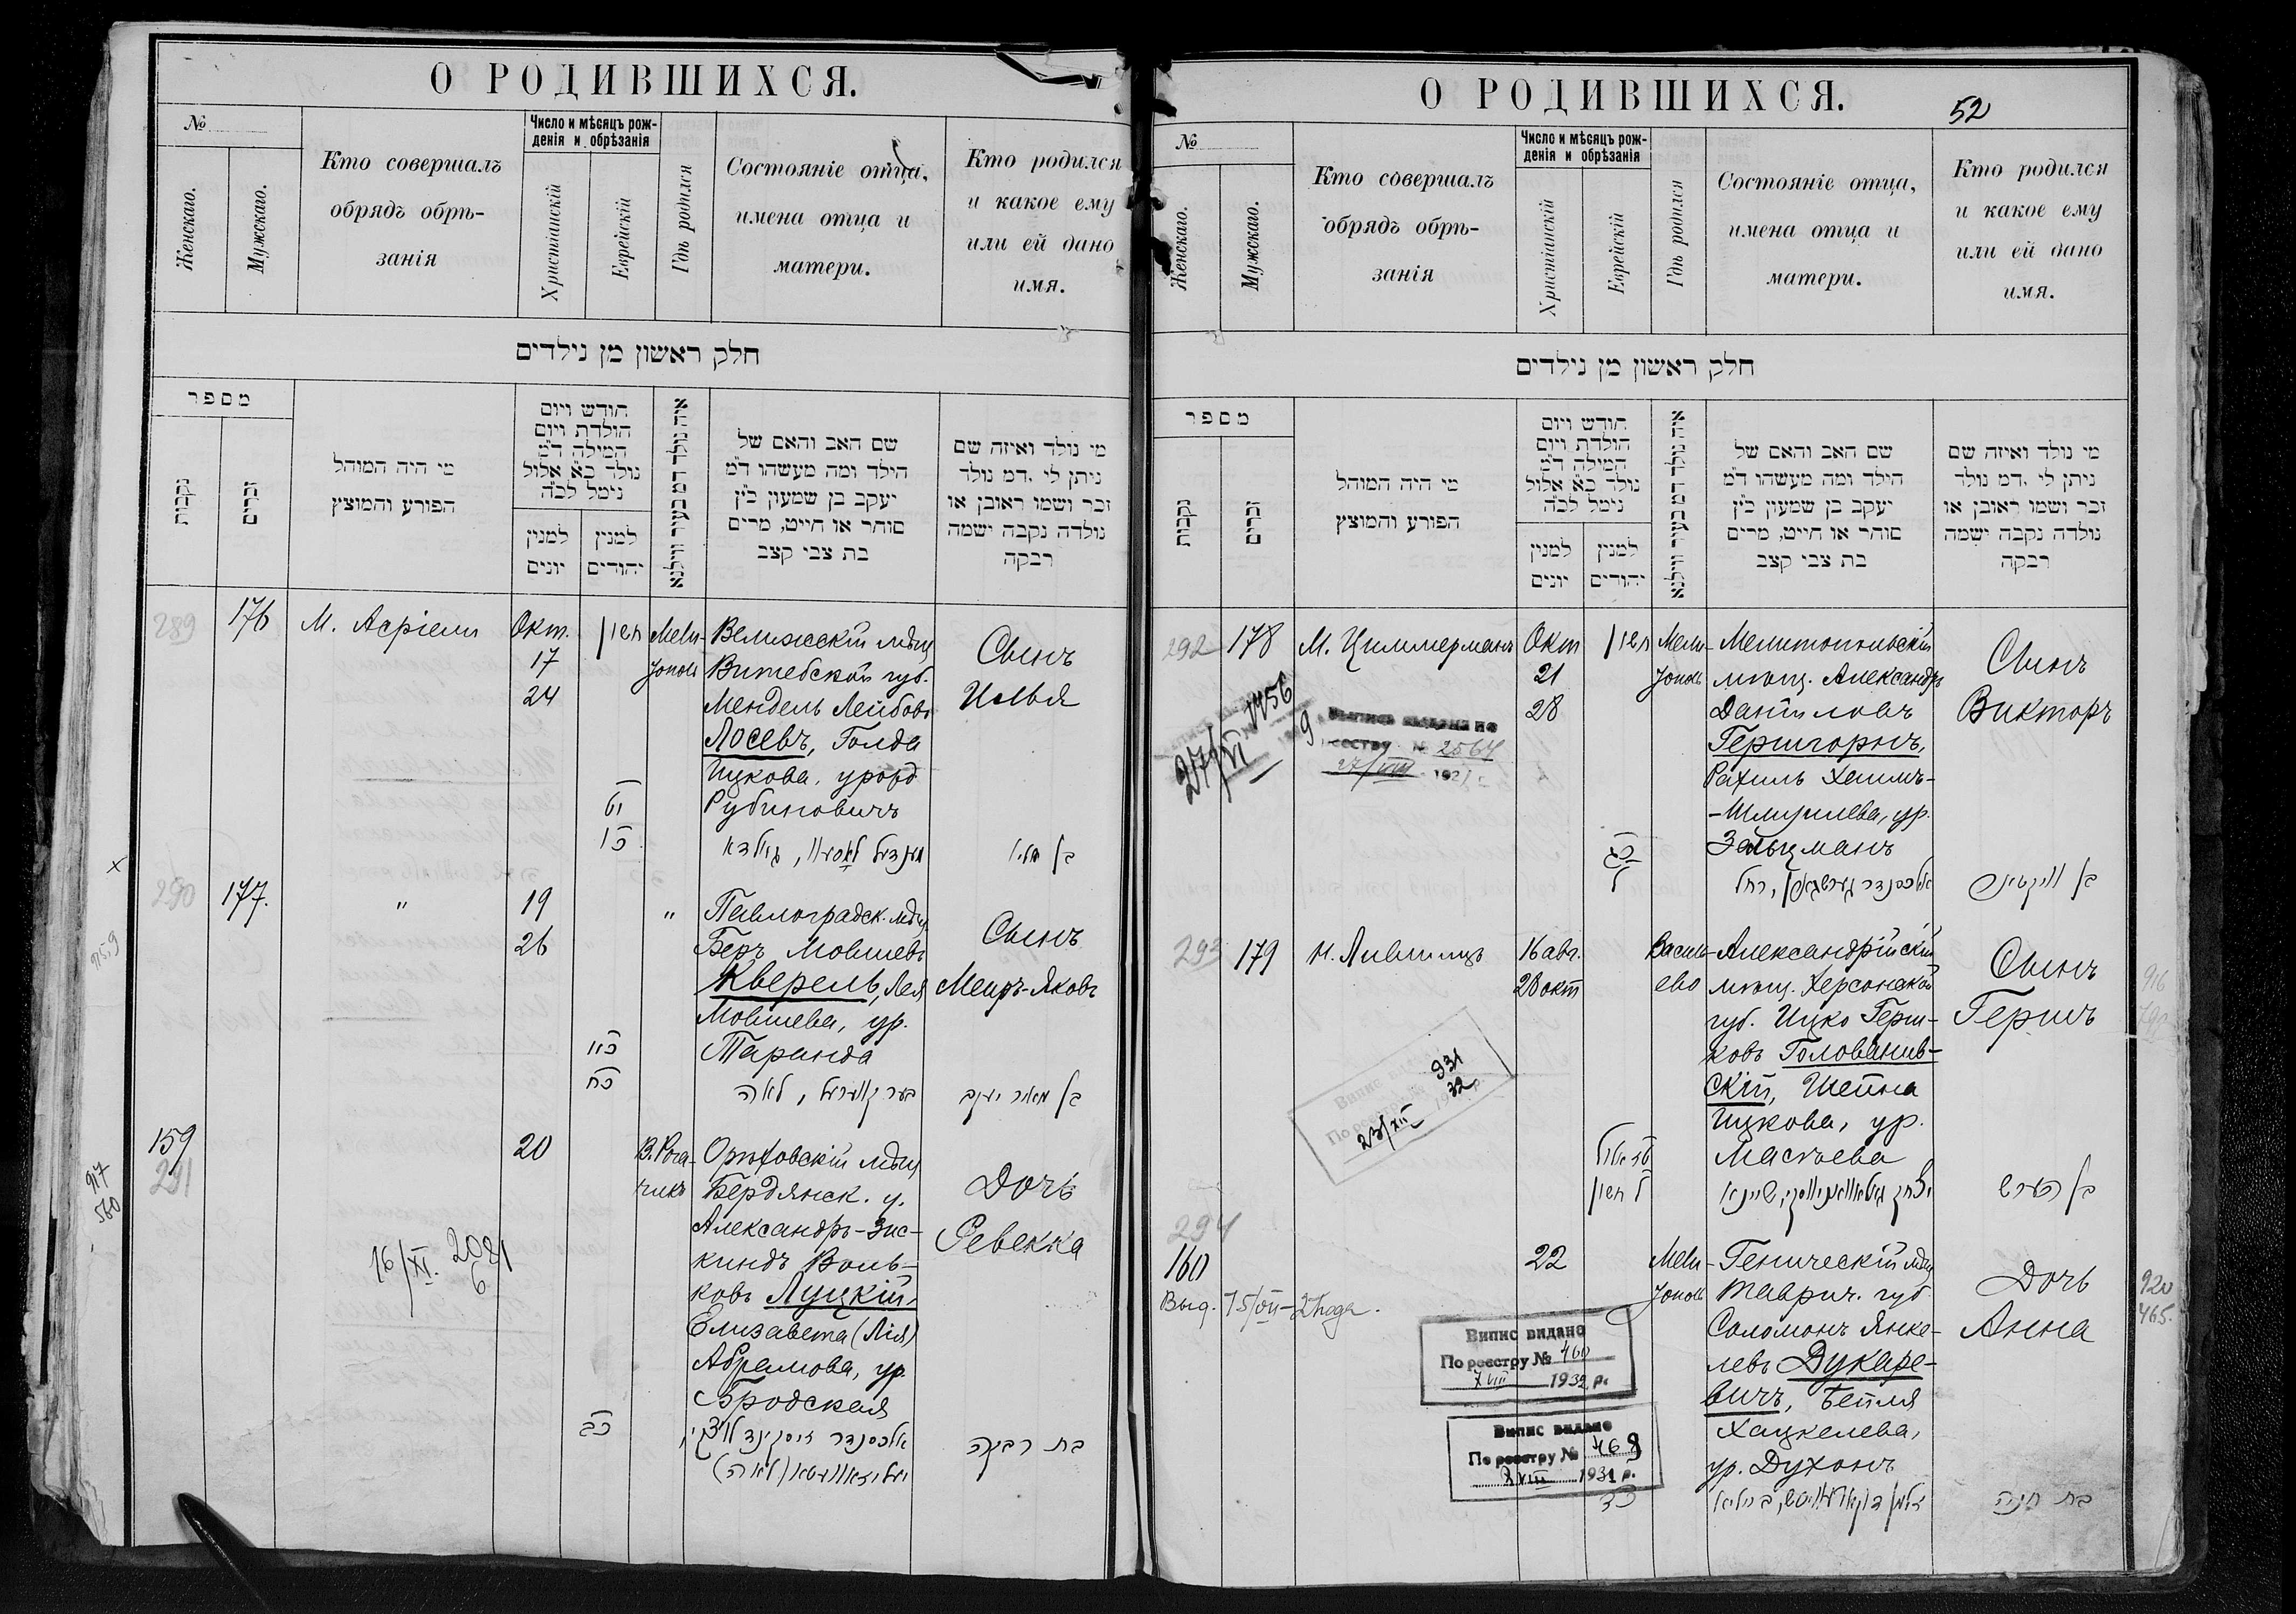 О РОДИВШИХСЯ.
№
Женскаго.
Мужскаго.
Кто совершалъ
обрядъ обрѣ-
занія
Число и мѣсяцъ рож-
денія и обрѣзанія
Христіанскій
Еврейскій
Гдѣ родился
Состояніе отца,
имена отца и
матери.
Кто родился
и какое ему
или ей дано
имя.
חלק ראשון מן נילדים
מספר
נקבות
זכרים
מי היה המוהל
הפורע והמוצץ
חודש ויום
הולדת ויום
המילה ד״מ
נולד כ״א אלול
נימל לכ״ה
למנין
יונים
למנין
יהודים
איה נולד דמ בעיר ווילנא
שם האב והאם של
הילד ומה מעשהו ד״מ
יעקב בן שמעון כ״ץ
סוחר או חייט, מרים
בת צבי קצב
מי נולד ואיזה שם
ניתן לי .דמ נולד
זכר ושמו ראובן או
נולדה נקבה ישמה
רבקה
289
176
М. Асріели
Окт.
17
24
חשון
Мели-
тополь
Велижскій мѣщ
Витебской губ.
Мендель Лейбовъ
Лосевъ, Голда
Ицкова, урожд
Рубиновичъ
Сынъ
Илья
יט
כו
290
177.
"
19
26
"
Павлоградск. мѣщ
Беръ Мовшевъ
Кверель, Лея
Мовшева, ур.
Таранда
Сынъ
Меиръ-Яковъ
כח
בער קווערעל, לאה
בן מאיר יעקב
159
291
20
В. Рога-
чикъ
Орѣховскій мѣщ
Бердянск. у.
Александръ-Зис-
киндъ Воль-
ковъ Луцкій,
Елизавета (Лія)
Абрамова, ур.
Бродская
Дочь
Ревекка
16/XI. 2081
6
כב
אלכסנדר זיסקינד לוצקי,
יעליזאוועטא (לאה)
בת רבקה
917
560
О РОДИВШИХСЯ.
52
№
Женскаго.
Мужскаго.
Кто совершалъ
обрядъ обрѣ-
занія
Число и мѣсяцъ рож-
денія и обрѣзанія
Христіанскій
Еврейскій
Гдѣ родился
Состояніе отца,
имена отца и
матери.
Кто родился
и какое ему
или ей дано
имя.
חלק ראשון מן נילדים
מספר
נקבות
זכרים
מי היה המוהל
הפורע והמוצץ
חודש ויום
הולדת ויום
המילה ד״מ
נולד כ״א אלול
נימל לכ״ה
למנין
יונים
למנין
יהודים
איה נולד דמ בעיר ווילנא
שם האב והאם של
הילד ומה מעשהו ד״מ
יעקב בן שמעון כ״ץ
סוחר או חייט, מרים
בת צבי קצב
מי נולד ואיזה שם
ניתן לי .דמ נולד
זכר ושמו ראובן או
נולדה נקבה ישמה
רבקה
292
178
М. Циммерманъ
Окт
21
28
חשון
Мели-
тополь
Мелитопольскій
мѣщ. Александръ
Даниловъ
Гершгорнъ,
Рахиль Хаимъ-
-Шмулева, ур.
Зальцманъ
Сынъ
Викторъ
27/VI 1456
9
выпись выдана по
реестру № 2564
27/VIII 1921
כג
ל
אלכסנדר גערשגארן, רחל
בן וויקטאר
293
179
М. Лившицъ
16 авг.
28 окт
Василь-
ево
Александрійскій
мѣщ. Херсонской
губ. Ицко Герш-
ковъ Голованив-
скій, Шейна
Ицкова, ур.
Масѣева
Сынъ
Гершъ
Випис видано
931
32
23/XII
ל חשון
בן הערש
294
160
22
Мели-
тополь
Геническій мѣщ
Таврич. губ
Соломонъ Янке-
левъ Дукаре-
вичъ, Бейля
Хацкелева,
ур. Духонъ
Дочь
Анна
Выд. 15/VII-25 года.
Випис видано
По реестру № 460
7 VIII 1932 р.
Випис видано
По реестру № 468
8 VIII 1931 р.
כד
בת חניה
916
920
465.